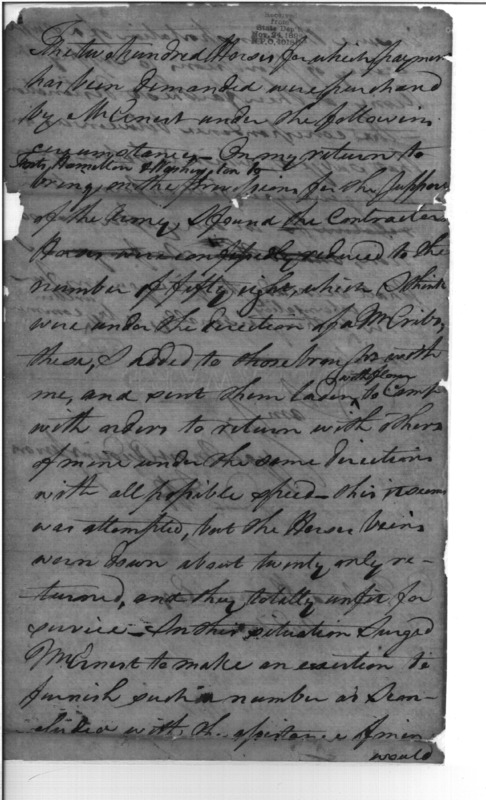 Received
from
State Dep't
Nov. 24, 1909
The two hundred Horses for which payment
has been demanded were purchased
by Mr Ernest under the following
circumstances — On my return to
Forts Hamilton & Washington to
bring on the provisions for the support
of the Army, I found the Contractors
Horses were reduced to the
number of fifty eight, which I think
were under the direction of a Mr
these, I added to those brought with
me, and sent them laden with flour to Camp
with orders to return with others
of mine under the same direction
with all possible speed — this it seems
was attempted, but the Horses being
worn down about twenty only re-
turned, and they totally unfit for
service — In this situation I urged
Mr Ernest to make an exertion to
furnish such a number as I con-
cluded with the assistance of mine
would